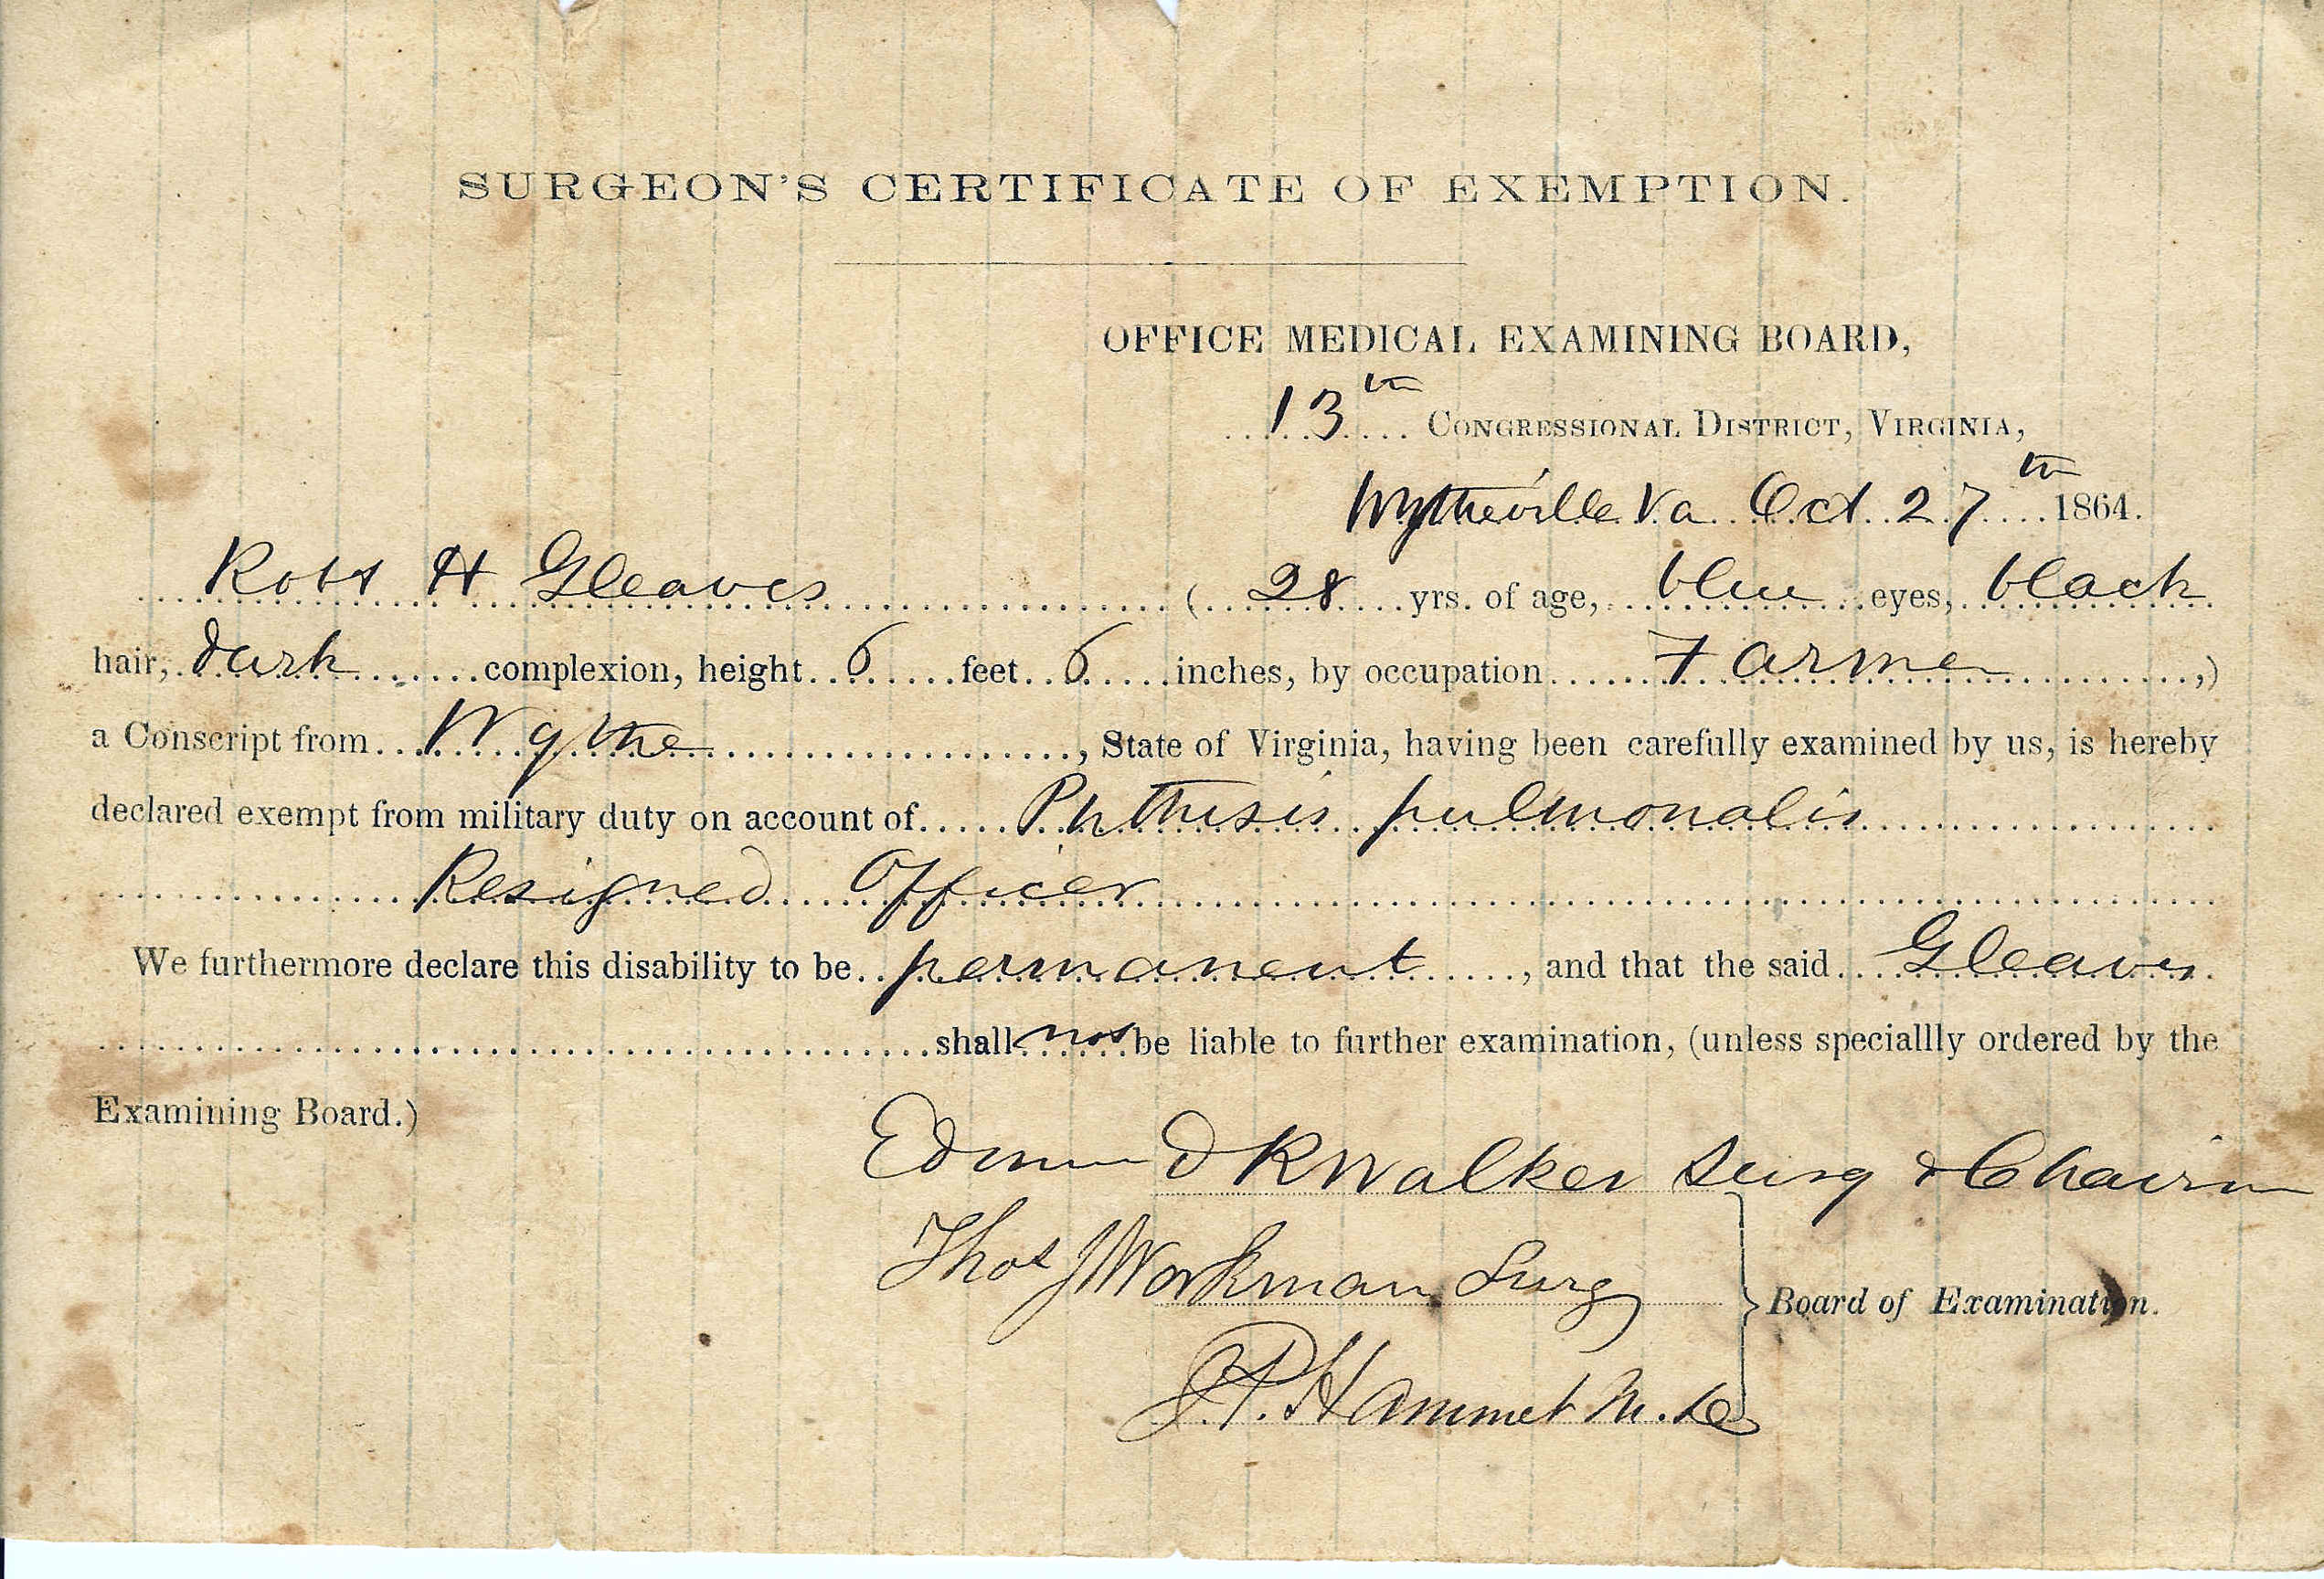 SURGEON'S CERTIFICATE OF EXEMPTION.
OFFICE MEDICAL EXAMINING BOARD,
13th CONGRESSIONAL DISTRICT, VIRGINIA,
Wytheville Va Oct 27th 1864.
Robt H Gleaves ( 28 yrs. of age, blue eyes, black
hair, dark complexion, height 6 feet 6 inches, by occupation Farmer ,)
a Conscript from Wythe , State of Virginia, having been carefully examined by us, is hereby
declared exempt from military duty on account of Phthisis pulmonalis
Resigned Officer
We furthermore declare this disability to be permanent , and that the said Gleaves
shall not be liable to further examination, (unless speciallly ordered by the
Examining Board.)
Edmund R Walker Surg & Chairm
Thos J Workman Surg
Board of Examination.
J.P. Hammet M.D.